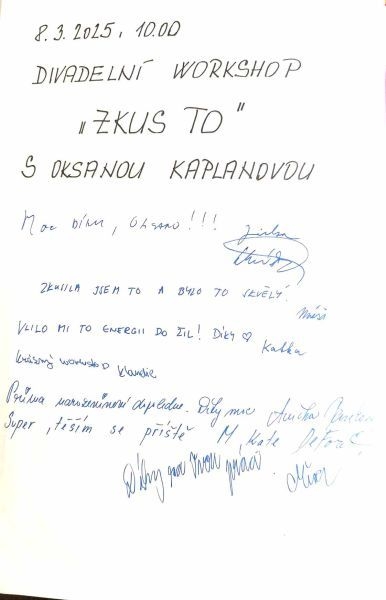 8.3.2025, 10.00
DIVADELNÍ WORKSHOP
„ZKUS TO"
S OKSANOU KAPLANOVOU
Moc DÍKY, OKSANO!!! Jirka
ZKUSILA JSEM TO A BYLO TO SKVĚLÝ!
VLILO MI TO ENERGII DO ŽIL! DÍKY ♡ Katka
krásný workshop Klaudie
Príma narozeninové dopoledne. Díky moc Anička
Super, těším se příště M, Kate
Díky za Tvou práci.